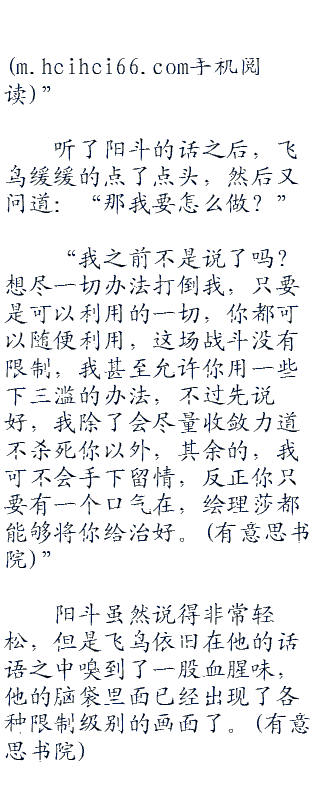 (m.hcihci66.com手机阅
读)”
听了阳斗的话之后，飞
鸟缓缓的点了点头，然后又
问道：“那我要怎么做？”
“我之前不是说了吗？
想尽一切办法打倒我，只要
是可以利用的一切，你都可
以随便利用，这场战斗没有
限制，我甚至允许你用一些
下三滥的办法，不过先说
好，我除了会尽量收敛力道
不杀死你以外，其余的，我
可不会手下留情，反正你只
要有一个口气在，绘理莎都
能够将你给治好。(有意思书
院)”
阳斗虽然说得非常轻
松，但是飞鸟依旧在他的话
语之中嗅到了一股血腥味，
他的脑袋里面已经出现了各
种限制级别的画面了。(有意
思书院)